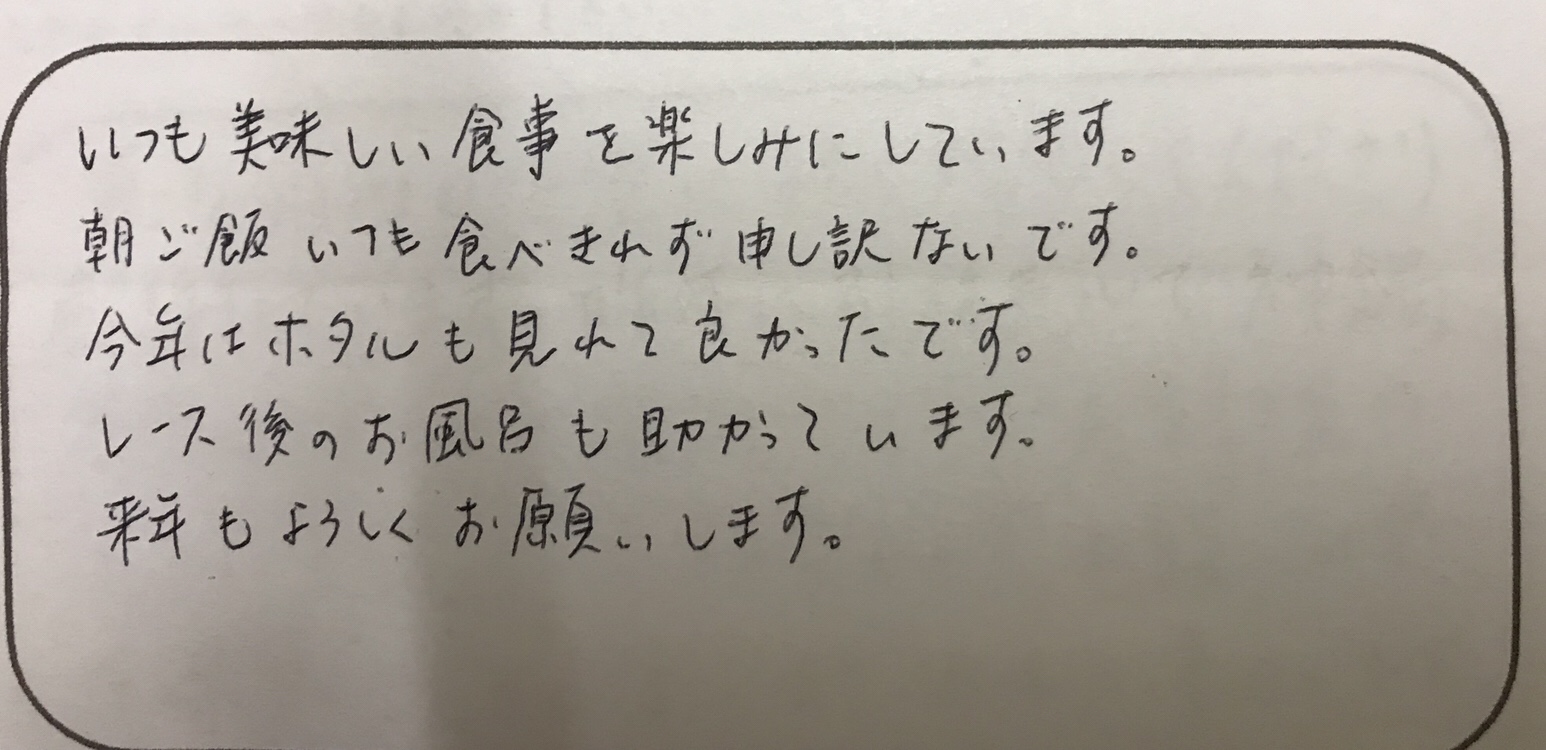 いつも美味しい食事を楽しみにしています。
朝ご飯いつも食べきれず申し訳ないです。
今年はホタルも見れて良かったです。
レース後のお風呂も助かっています。
来年もよろしくお願いします。